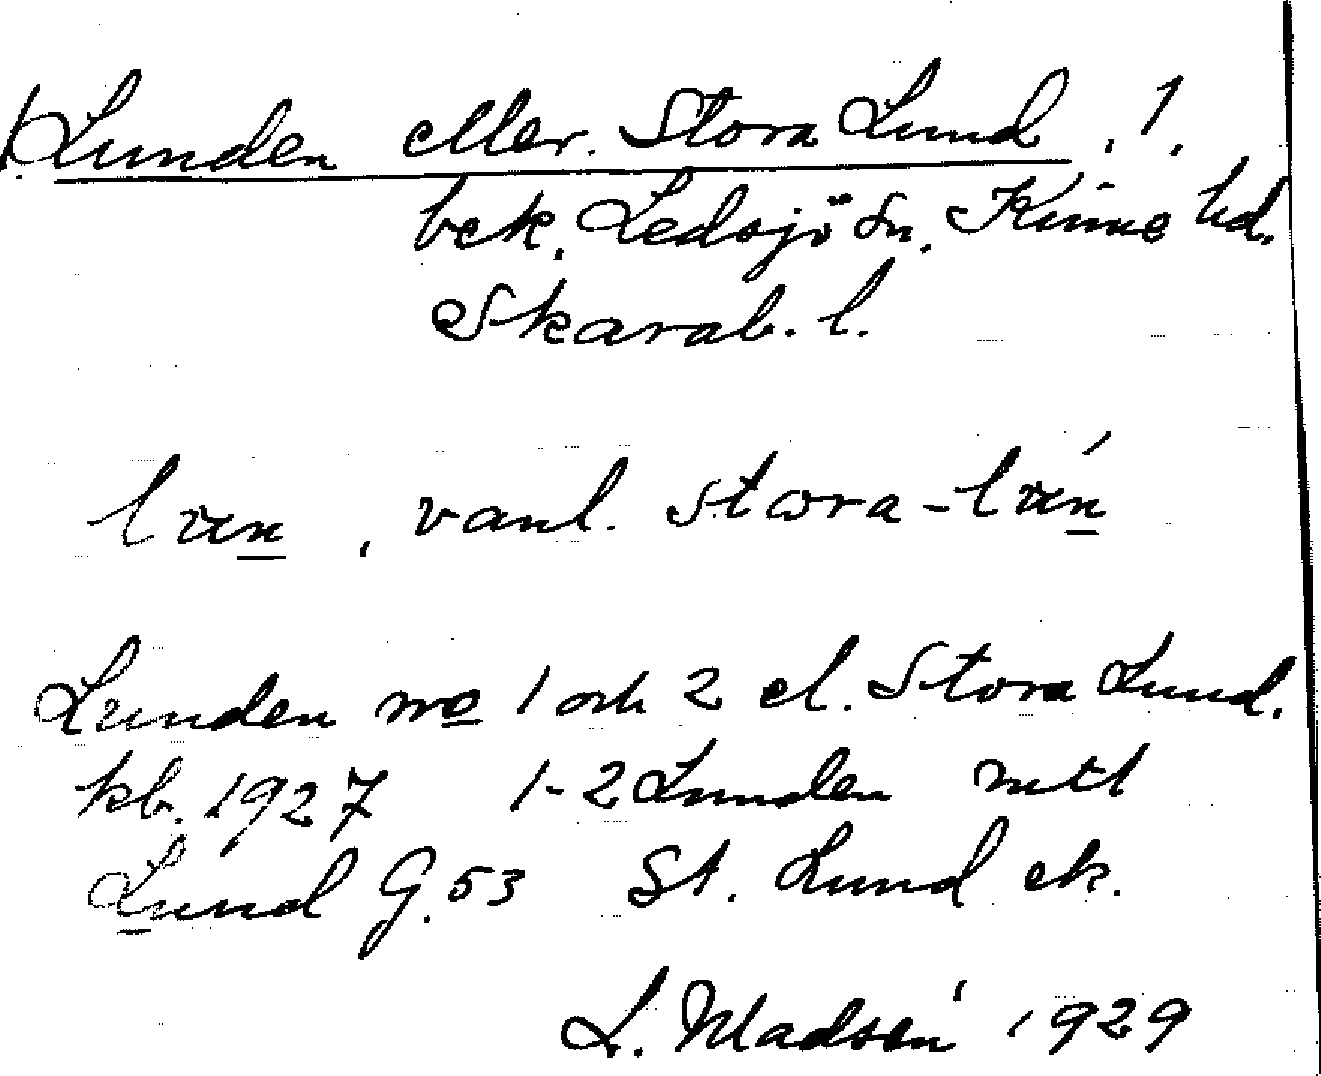 Lunden eller Stora Lund . 1.
bek. Ledsjö sn. Kinne hd.
Skarab. l.
lœn, vanl. stωra-lœ́n
Lunden no 1 och 2 el. Stora Lund.
kb. 1927 1-2 Lunden mtl
Lund G. 53 St. Lund ek.
L. Madsén 1929